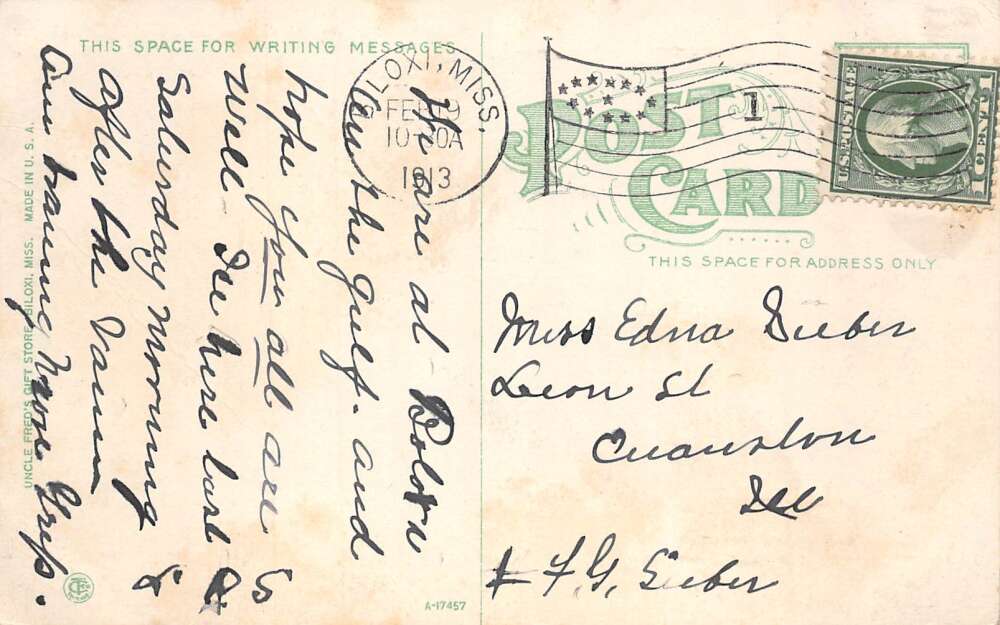 THIS SPACE FOR WRITING MESSAGES
We are at
on the gulf. and
hope you all are
Well
Saturday Morning &
after the
am having More Grip.
UNCLE FRED'S GIFT STORE, BILOXI, MISS. MADE IN U.S.A.
A-17457
BILOXI, MISS.
FEB 19
10-30A
1913
1
POST CARD
THIS SPACE FOR ADDRESS ONLY
U.S. POSTAGE
1 CENT 1
Miss Edna Sieber
Leon St
Evanston
Ill
F. G. Sieber